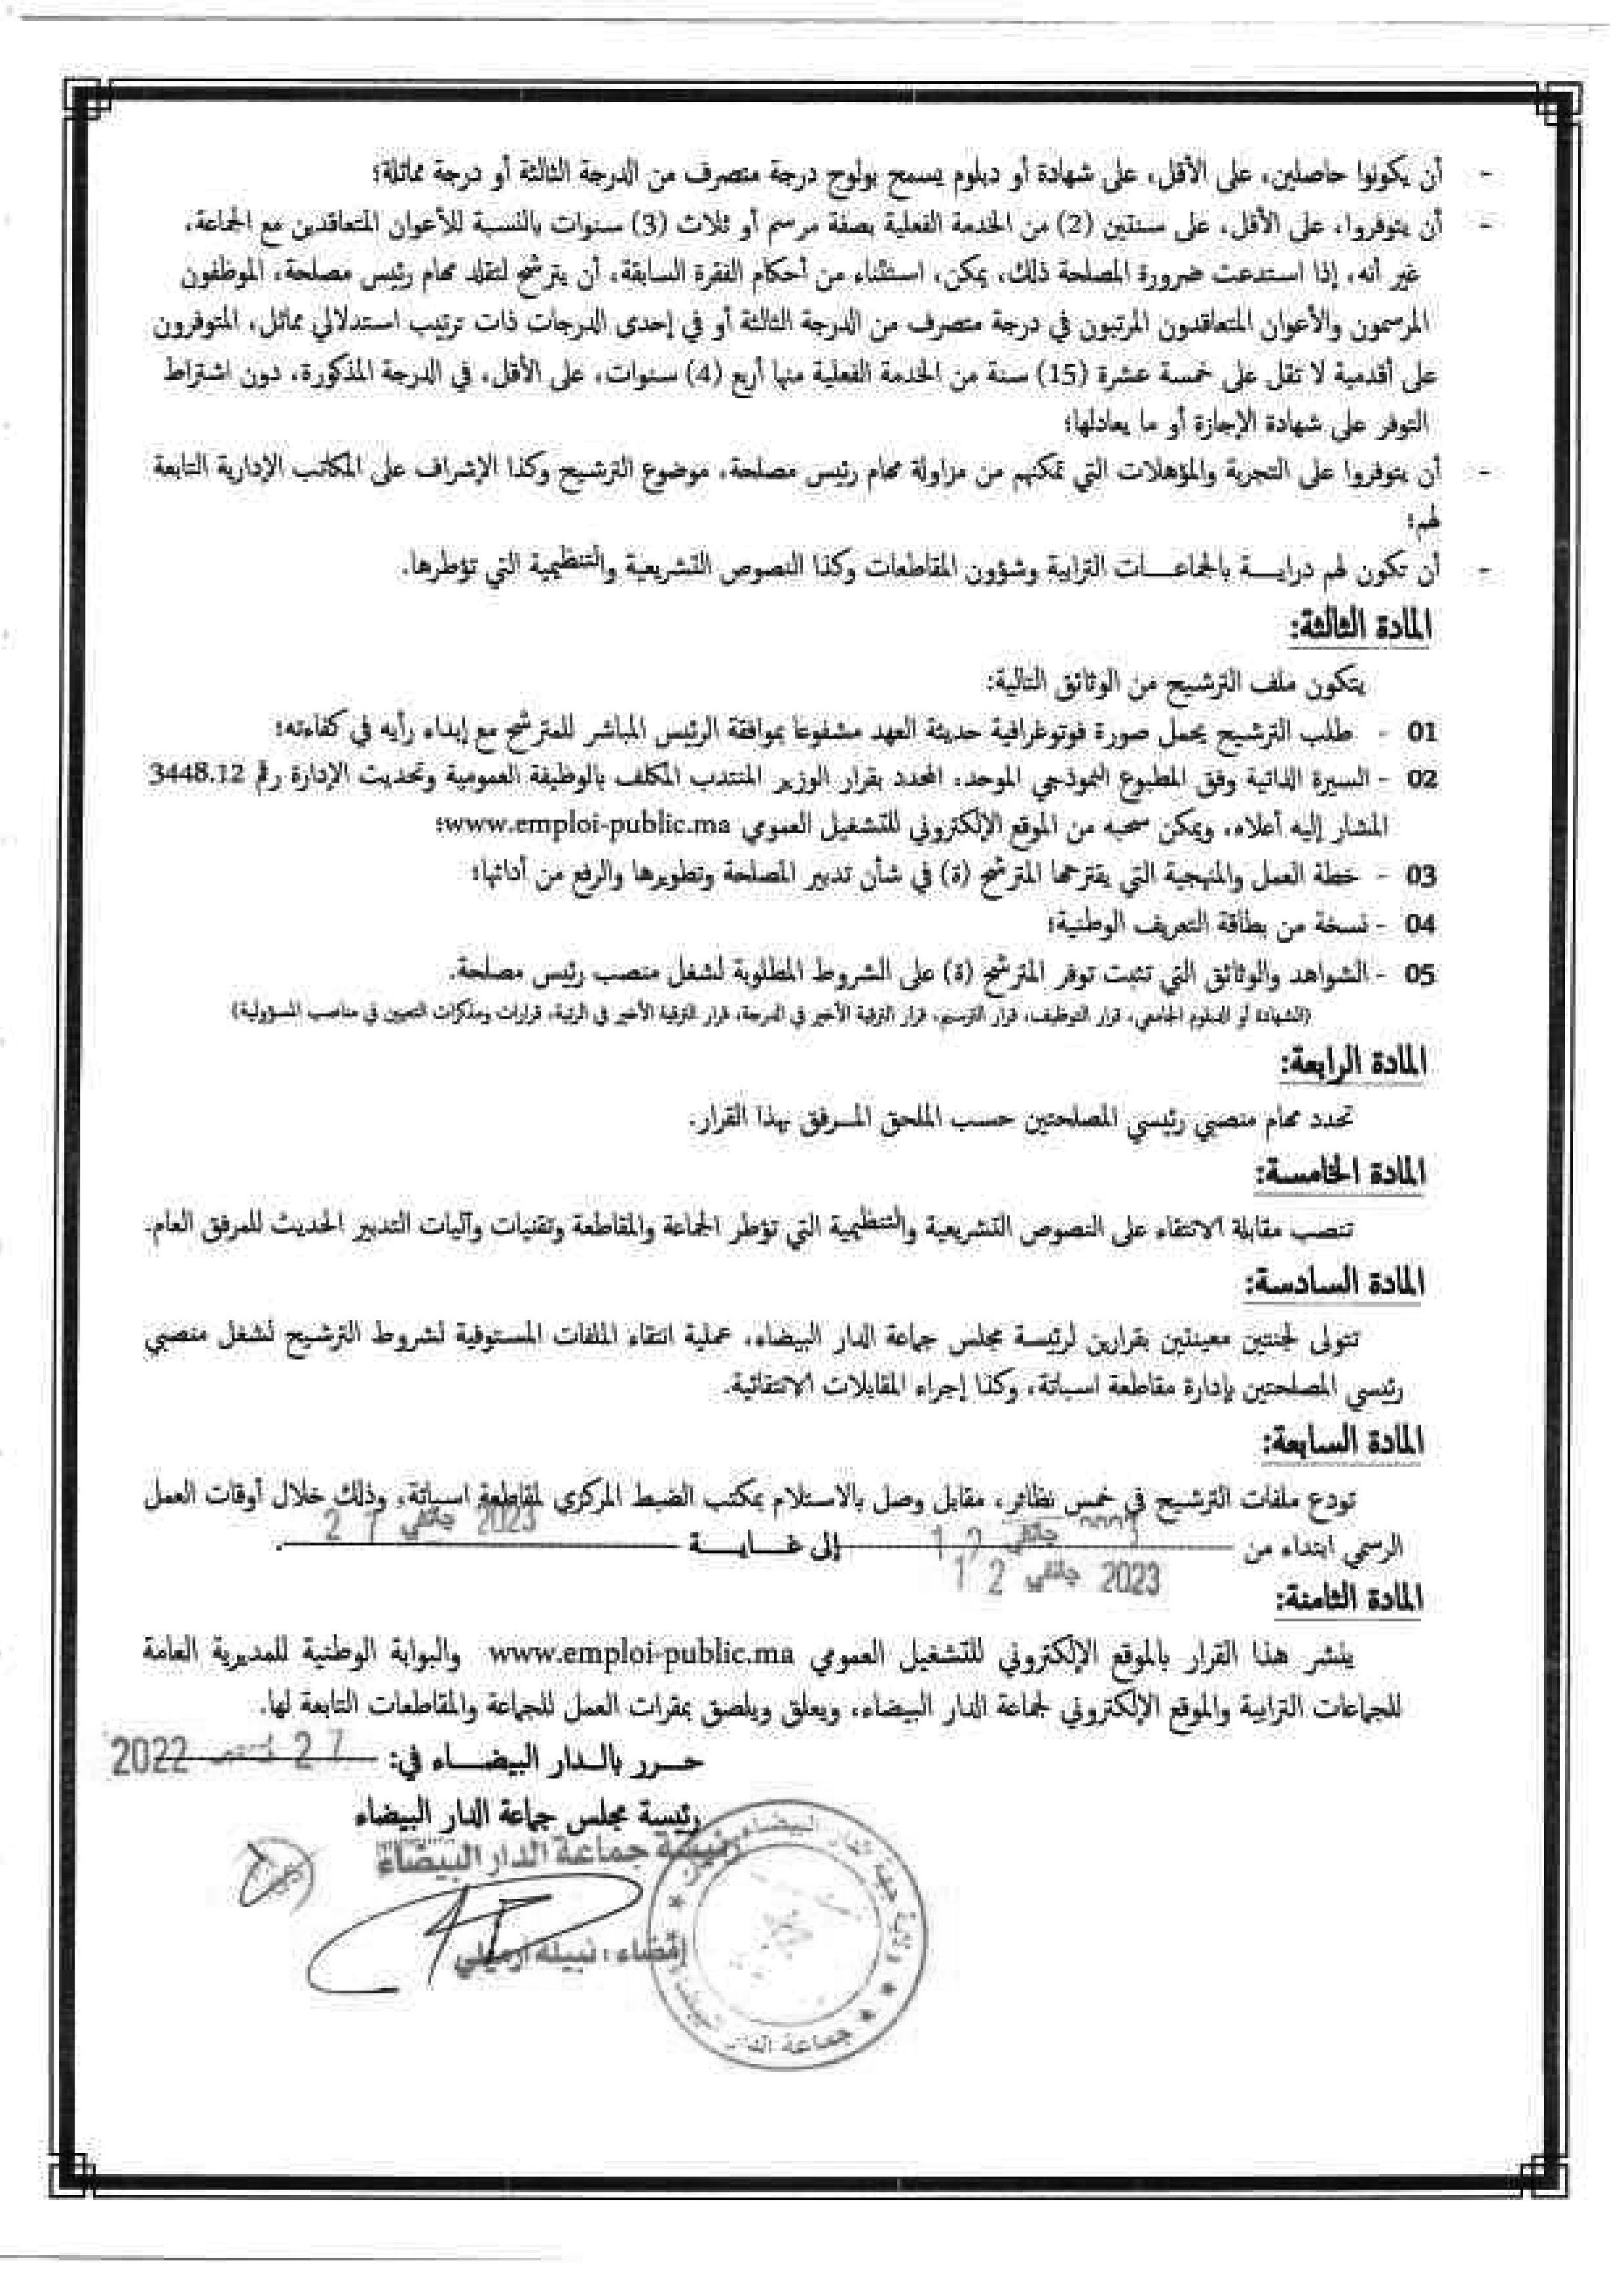 - أن يكونوا حاصلين، على الأقل، على شهادة أو دبلوم يسمح بولوج درجة متصرف من الدرجة الثالثة أو درجة مماثلة؛
- أن يتوفروا، على الأقل، على سنتين (2) من الخدمة الفعلية بصفة مرسم أو ثلاث (3) سنوات بالنسبة للأعوان المتعاقدين مع الجماعة،
غير أنه، إذا استدعت ضرورة المصلحة ذلك، يمكن، استثناء من أحكام الفقرة السابقة، أن يترشح لتقلد مهام رئيس مصلحة، الموظفون
المرسمون والأعوان المتعاقدون المرتبون في درجة متصرف من الدرجة الثالثة أو في إحدى الدرجات ذات ترتيب استدلالي مماثل، المتوفرون
على أقدمية لا تقل على خمسة عشرة (15) سنة من الخدمة الفعلية منها أربع (4) سنوات، على الأقل، في الدرجة المذكورة، دون اشتراط
التوفر على شهادة الإجازة أو ما يعادلها؛
- أن يتوفروا على التجربة والمؤهلات التي تمكنهم من مزاولة مهام رئيس مصلحة، موضوع الترشيح وكذا الإشراف على المكاتب الإدارية التابعة
لهم؛
- أن تكون لهم درايـــة بالجماعـــات الترابية وشؤون المقاطعات وكذا النصوص التشريعية والتنظيمية التي تؤطرها.
المادة الثالثة:
يتكون ملف الترشيح من الوثائق التالية:
01 - طلب الترشيح يحمل صورة فوتوغرافية حديثة العهد مشفوعا بموافقة الرئيس المباشر للمترشح مع إبداء رأيه في كفاءته؛
02 - السيرة الذاتية وفق المطبوع النموذجي الموحد، المحدد بقرار الوزير المنتدب المكلف بالوظيفة العمومية وتحديث الإدارة رقم 3448.12
المشار إليه أعلاه، ويمكن سحبه من الموقع الإلكتروني للتشغيل العمومي www.emploi-public.ma؛
03 - خطة العمل والمنهجية التي يقترحها المترشح (ة) في شأن تدبير المصلحة وتطويرها والرفع من أدائها؛
04 - نسخة من بطاقة التعريف الوطنية؛
05 - الشواهد والوثائق التي تثبت توفر المترشح (ة) على الشروط المطلوبة لشغل منصب رئيس مصلحة.
(الشهادة أو الدبلوم الجامعي، قرار التوظيف، قرار الترسيم، قرار الترقية الأخير في الدرجة، قرار الترقية الأخير في الرتبة، قرارات ومذكرات التعيين في مناصب المسؤولية)
المادة الرابعة:
تحدد مهام منصبي رئيسي المصلحتين حسب الملحق المـرفق بهذا القرار.
المادة الخامسة:
تنصب مقابلة الانتقاء على النصوص التشريعية والتنظيمية التي تؤطر الجماعة والمقاطعة وتقنيات وآليات التدبير الحديث للمرفق العام.
المادة السادسة:
تتولى لجنتين معينتين بقرارين لرئيسة مجلس جماعة الدار البيضاء، عملية انتقاء الملفات المستوفية لشروط الترشيح لشغل منصبي
رئيسي المصلحتين بإدارة مقاطعة اسباتة، وكذا إجراء المقابلات الانتقائية.
المادة السابعة:
تودع ملفات الترشيح في خمس نظائر، مقابل وصل بالاستلام بمكتب الضبط المركزي لمقاطعة اسباتة، وذلك خلال أوقات العمل
الرسمي ابتداء من 12 جانفي إلى غـــايـــة 27 جانفي 2023.
12 جانفي 2023
المادة الثامنة:
ينشر هذا القرار بالموقع الإلكتروني للتشغيل العمومي www.emploi-public.ma والبوابة الوطنية للمديرية العامة
للجماعات الترابية والموقع الإلكتروني لجماعة الدار البيضاء، ويعلق ويلصق بمقرات العمل للجماعة والمقاطعات التابعة لها.
حـــرر بالـدار البيضـــاء في: 27 2022
رئيسة مجلس جماعة الدار البيضاء
رئيسة جماعة الدار البيضاء
إمضاء : نبيلة ارميلي
جماعة الدار البيضاء